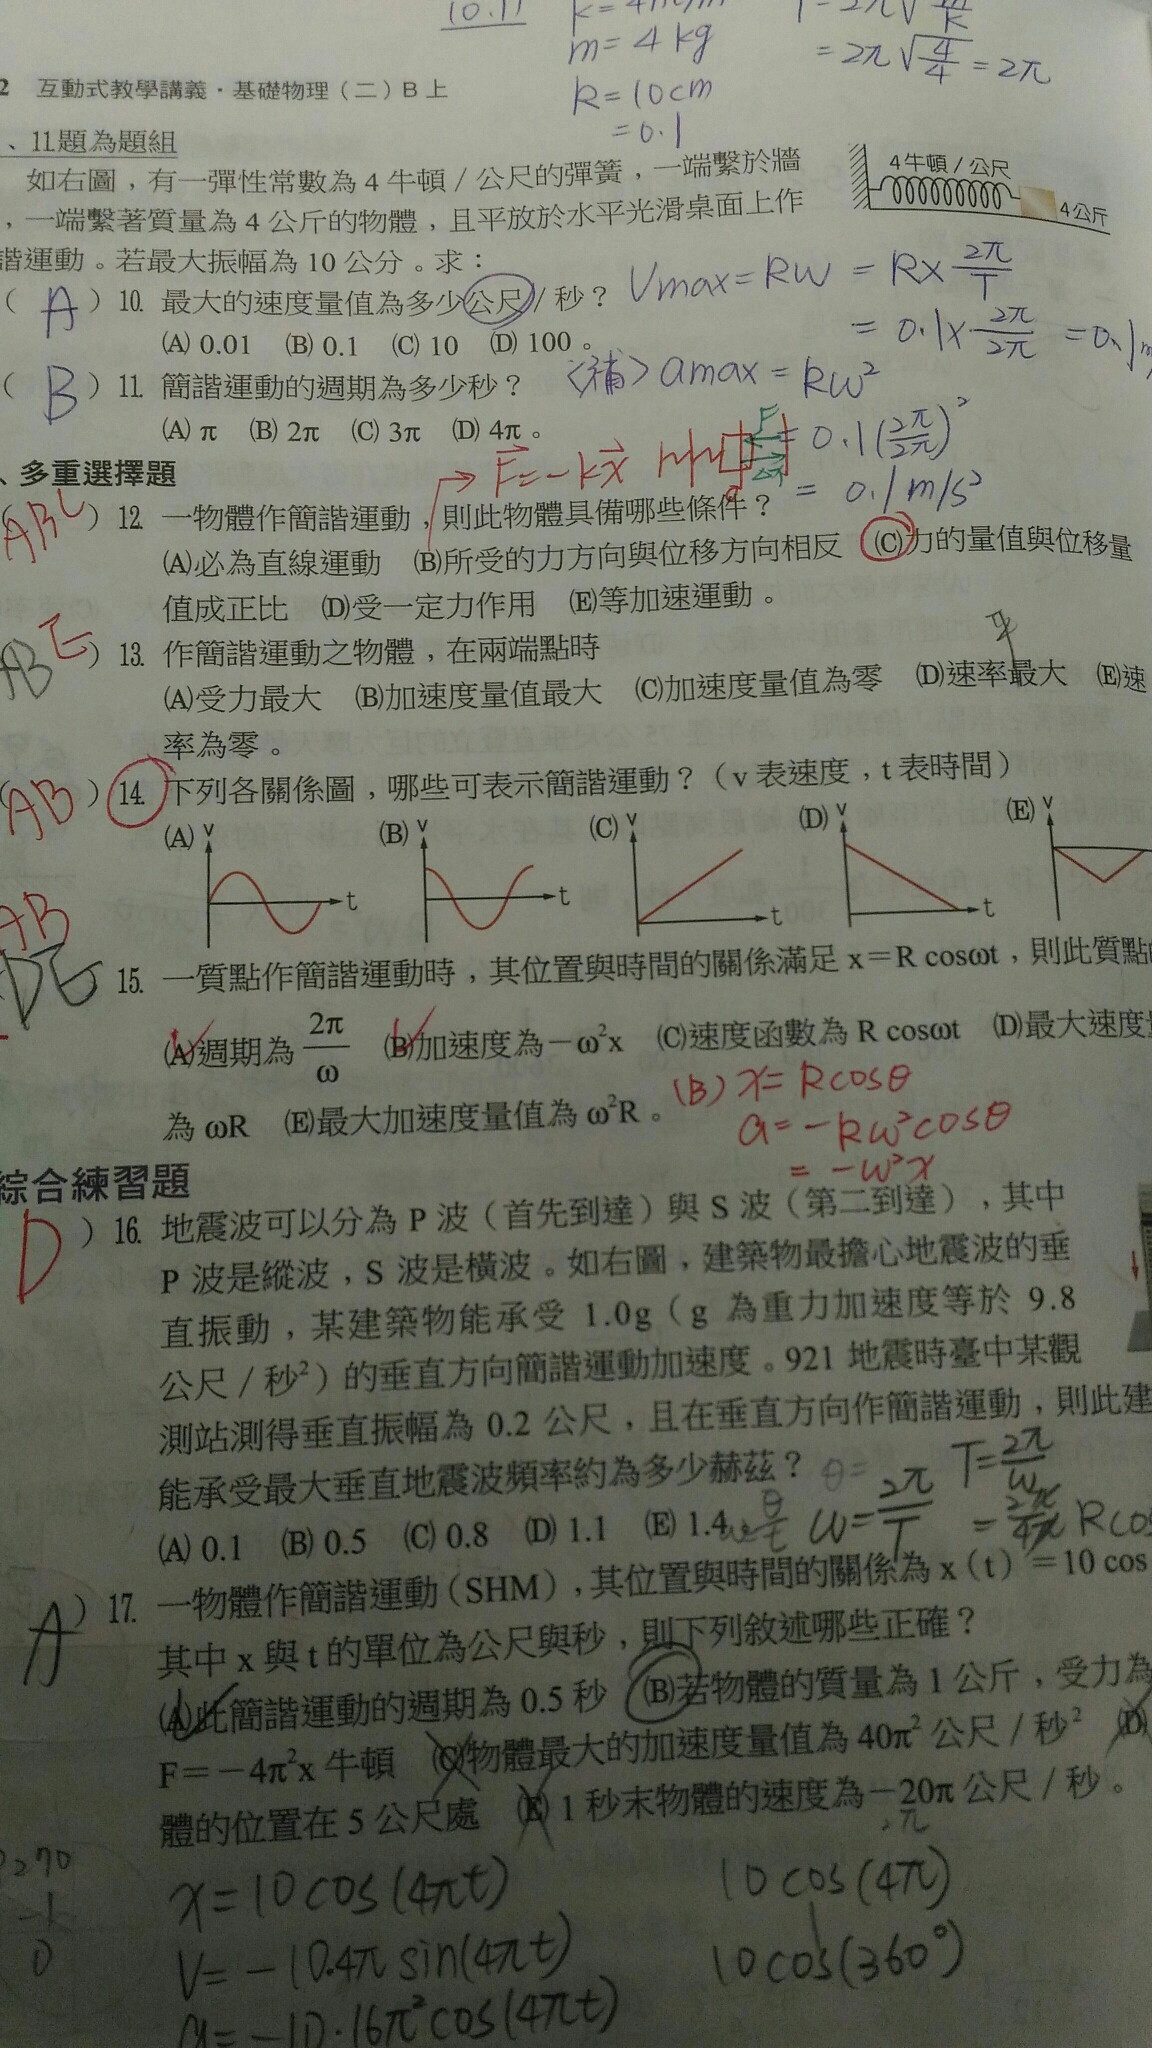 10.11
m=4kg
=2π√4/4=2π
2 互動式教學講義・基礎物理(二)B上
R=10cm
=0.1
、11題為題組
4牛頓/公尺
4公斤
如右圖,有一彈性常數為4牛頓/公尺的彈簧,一端繫於牆
,一端繫著質量為4公斤的物體,且平放於水平光滑桌面上作
諧運動。若最大振幅為10公分。求:
( A )10. 最大的速度量值為多少公尺/秒?
Vmax=Rω=R×2π/T
=0.1×2π/2π=0.1m
(A) 0.01 (B) 0.1 (C) 10 (D) 100。
( B )11. 簡諧運動的週期為多少秒?
<補>amax=Rω²
=0.1(2π/2π)²
=0.1m/s²
(A) π (B) 2π (C) 3π (D) 4π。
F=-kx
F
Δx
、多重選擇題
ABC )12. 一物體作簡諧運動,則此物體具備哪些條件?
(A)必為直線運動 (B)所受的力方向與位移方向相反 (C)力的量值與位移量
值成正比 (D)受一定力作用 (E)等加速運動。
ABE )13. 作簡諧運動之物體,在兩端點時
(A)受力最大 (B)加速度量值最大 (C)加速度量值為零 (D)速率最大 (E)速
率為零。
( AB )14. 下列各關係圖,哪些可表示簡諧運動?(v表速度,t表時間)
(A) v t
(B) v t
(C) v t
(D) v t
(E) v
AB
DE 15. 一質點作簡諧運動時,其位置與時間的關係滿足x=R cosωt,則此質點
(A)週期為2π/ω (B)加速度為-ω²x (C)速度函數為R cosωt (D)最大速度
為ωR (E)最大加速度量值為ω²R。
(B) x=Rcosθ
a=-Rω²cosθ
=-ω²x
綜合練習題
D )16. 地震波可以分為P波(首先到達)與S波(第二到達),其中
P波是縱波,S波是橫波。如右圖,建築物最擔心地震波的垂
直振動,某建築物能承受1.0g(g為重力加速度等於9.8
公尺/秒²)的垂直方向簡諧運動加速度。921地震時臺中某觀
測站測得垂直振幅為0.2公尺,且在垂直方向作簡諧運動,則此建
能承受最大垂直地震波頻率約為多少赫茲?
(A) 0.1 (B) 0.5 (C) 0.8 (D) 1.1 (E) 1.4
ω=2π/T
T=2π/ω
A )17. 一物體作簡諧運動(SHM),其位置與時間的關係為x(t)=10 cos
其中x與t的單位為公尺與秒,則下列敘述哪些正確?
(A)此簡諧運動的週期為0.5秒 (B)若物體的質量為1公斤,受力為
F=-4π²x牛頓 (C)物體最大的加速度量值為40π²公尺/秒² (D)
體的位置在5公尺處 (E)1秒末物體的速度為-20π公尺/秒。
x=10cos(4πt)
10cos(4π)
v=-10.4πsin(4πt)
10cos(360°)
a=-10・16π²cos(4πt)